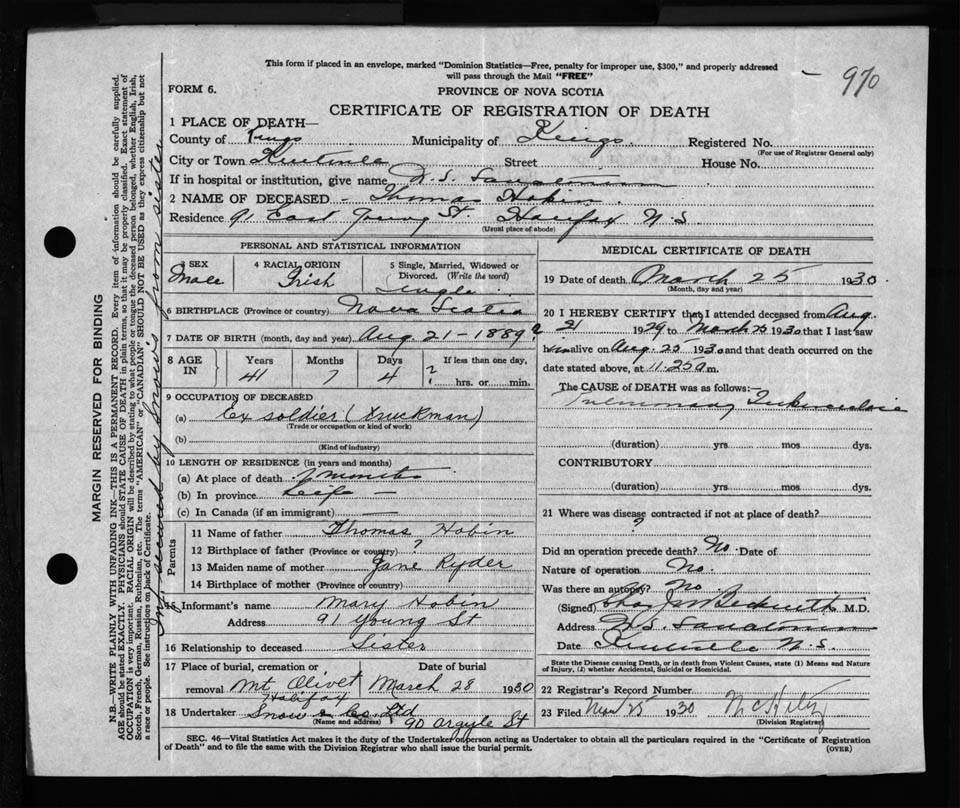 This form if placed in an envelope, marked "Dominion Statistics—Free, penalty for improper use, $300," and properly addressed
will pass through the Mail "FREE"
970
FORM 6.
PROVINCE OF NOVA SCOTIA
CERTIFICATE OF REGISTRATION OF DEATH
1 PLACE OF DEATH—
County of Kings Municipality of Kings. Registered No.
(For use of Registrar General only)
City or Town Kentville Street House No.
If in hospital or institution, give name N.S. Sanatorium
2 NAME OF DECEASED - Thomas Hobin
Residence 91 East Young St. Halifax N.S
(Usual place of abode)
PERSONAL AND STATISTICAL INFORMATION
3 SEX 4 RACIAL ORIGIN 5 Single, Married, Widowed or
Divorced. (Write the word)
Male Irish Single
6 BIRTHPLACE (Province or country) Nova Scotia
7 DATE OF BIRTH (month, day and year) Aug. 21 - 1889 ?
8 AGE IN Years Months Days If less than one day,
41 7 4 ? hrs. or min.
9 OCCUPATION OF DECEASED
(a) Ex soldier (truckman)
(Trade or occupation or kind of work)
(b)
(Kind of industry)
10 LENGTH OF RESIDENCE (in years and months)
(a) At place of death 7 months
(b) In province Life —
(c) In Canada (if an immigrant) —
Parents
11 Name of father Thomas Hobin
12 Birthplace of father (Province or country) ?
13 Maiden name of mother Jane Ryder
14 Birthplace of mother (Province or country)
15 Informant's name Mary Hobin
Address 91 Young St
16 Relationship to deceased Sister
17 Place of burial, cremation or Date of burial
removal Mt Olivet March 28 1930
Halifax
18 Undertaker Snow & Co. Ltd
(Name and address) 90 Argyle St
MEDICAL CERTIFICATE OF DEATH
19 Date of death March 25 1930
(Month, day and year)
20 I HEREBY CERTIFY that I attended deceased from Aug.
21 1929 to March 25 1930 that I last saw
him alive on Aug. 25 1930 and that death occurred on the
date stated above, at 11.25 a m.
The CAUSE of DEATH was as follows:—
Pulmonary Tuberculosis
(duration) yrs mos dys.
CONTRIBUTORY
(duration) yrs mos dys.
21 Where was disease contracted if not at place of death?
?
Did an operation precede death? No. Date of
Nature of operation No.
Was there an autopsy? No
(Signed) Beckwith M.D.
Address N.S. Sanatorium
Date Kentville N.S.
State the Disease causing Death, or in death from Violent Causes, state (1) Means and Nature
of Injury, (2) whether Accidental, Suicidal or Homicidal.
22 Registrar's Record Number
23 Filed Mar 25 1930
(Division Registrar)
SEC. 46—Vital Statistics Act makes it the duty of the Undertaker or person acting as Undertaker to obtain all the particulars required in the "Certificate of Registration
of Death" and to file the same with the Division Registrar who shall issue the burial permit.
(OVER)
MARGIN RESERVED FOR BINDING
N.B.—WRITE PLAINLY WITH UNFADING INK—THIS IS A PERMANENT RECORD. Every item of information should be carefully supplied.
AGE should be stated EXACTLY. PHYSICIANS should STATE CAUSE OF DEATH in plain terms, so that it may be properly classified. Exact statement of
OCCUPATION is very important. RACIAL ORIGIN will be described by stating to what people or tongue the deceased person belonged, whether English, Irish,
Scotch, French, German, Russian, Ruthenian, etc. The terms "AMERICAN" or "CANADIAN" SHOULD NOT BE USED as they express citizenship but not
a race or people. See instructions on back of Certificate.
Inf. secured by Snow's from sister